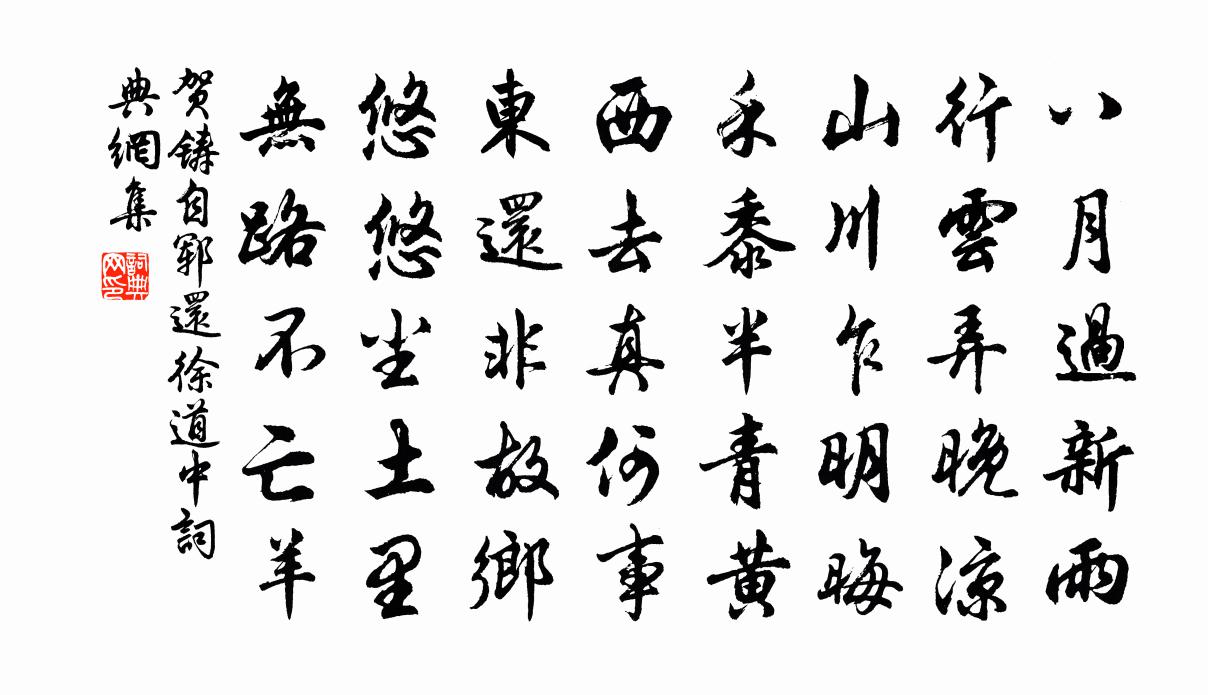 八月過新雨
行雲弄晚涼
山川乍明晦
禾黍半青黄
西去真何事
東還非故鄉
悠悠尘土里
無路不亡羊
贺鑄自鄆還徐道中詞
典網集
詞典
网印